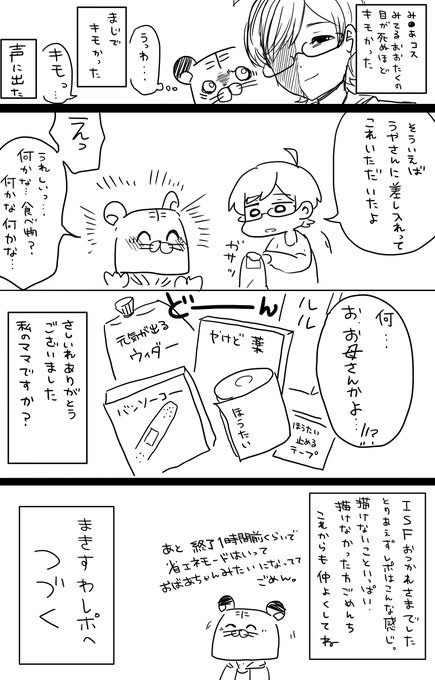 み●あコス
みてるおおたくの
目が死ぬほど
キモかった
うっわ…
まじで
キモかった
キモっ…
声に出た
そういえば
うやさんに差し入れって
これいただいたよ
ガサッ
えっ
うれしいっ…
何かな…食べ物?
何かな何かな…
どーーん
何…
お…お母さんかよ…!!?
元気が出る
ウィダー
やけど薬
バンソーコー
ほうたい
ほうたい
止める
テープ
さしいれありがとう
ございました
私のママですか?
ISFおつかれさまでした
とりあえずレポはこんな感じ。
描けないこといっぱい…
描けなかった方ごめんち
これからも仲よくしてね
あと終了1時間前くらいで
省エネモードはいって
おばあちゃんみたいになってて
ごめん。
まきすわレポへ
つづく